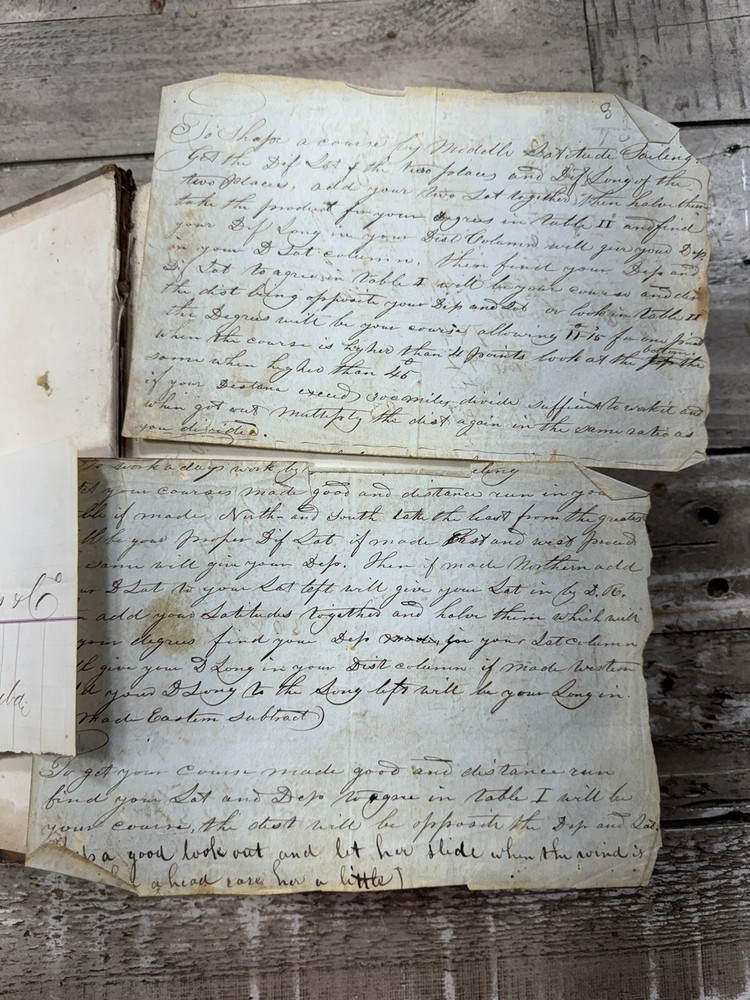 8
To Shape a course by Middle Latitude Sailing
Get the Dif Lat of the two places and Dif Long of the
two places, add your two Lat together then halve them
take the product for your degrees in table II and find
your Dif Long in your Dist Column will give your Dep
in your D Lat column, then find your Dep and
D Lat to agree in table I will be your course and dis
the dist being opposite your Dep and Lat or look in table II
the Degrees will be your course allowing 11°15 for one point
when the course is higher than 4 points look at the bottom the
same when higher than 45°
if your Distance exceed 300 miles divide sufficient to work it and
when got out multiply the dist again in the same ratio as
you divided.
To work a days work by
your courses made good and distance run in you
ble if made North and South take the least from the greates
ll be your proper Dif Lat if made East and west proceed
same will give your Dep. Then if made Northern add
ur D Lat to your Lat left will give your Lat in by D. R.
add your Latitudes together and halve them which will
your degrees find your Dep in your Lat column
ll give your D Long in your Dist column if made western
d your D Long to the Long left will be your Long in
made Eastern subtract)
To get your course made good and distance run
find your Lat and Dep to agree in table I will be
your course, the dist will be opposite the Dep and Lat.
a good look out and let her slide when the wind is
ahead ease her a little)
uba